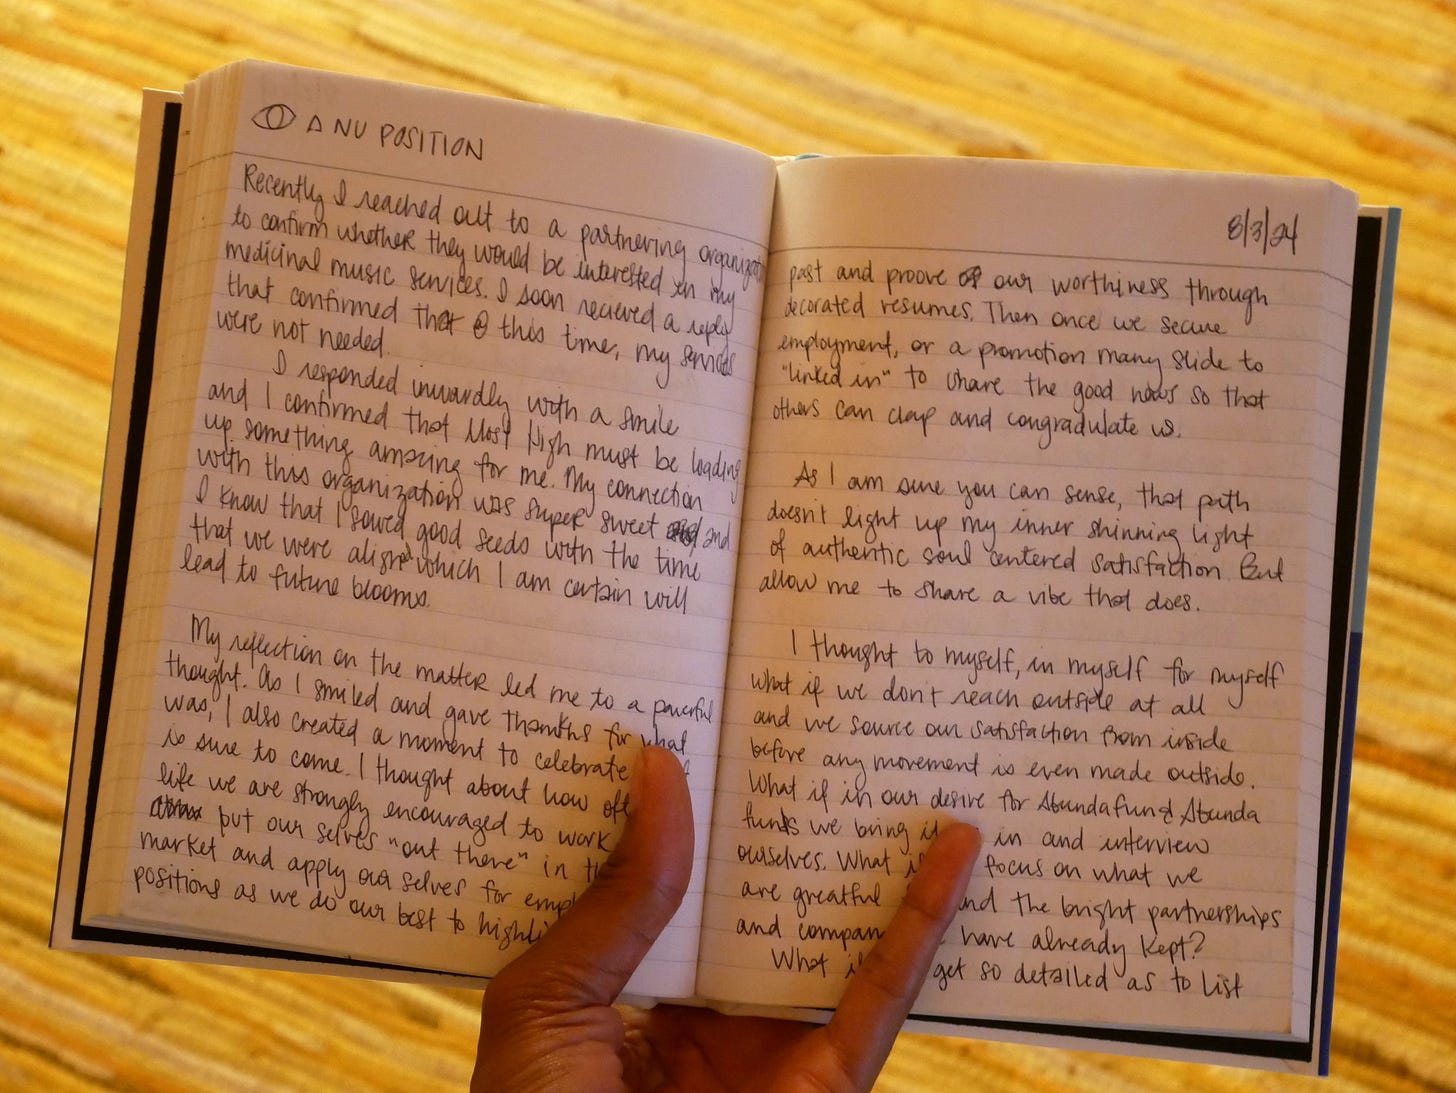 Δ NU POSITION
Recently I reached out to a partnering organizati
to confirm whether they would be interested in my
medicinal music services. I soon recieved a reply
that confirmed that @ this time, my services
were not needed.
I responded inwardly with a smile
and I confirmed that Most High must be loading
up something amazing for me. My connection
with this organization was super sweet and
I know that I sowed good seeds with the time
that we were aligned which I am certain will
lead to future blooms.
My reflection on the matter led me to a powerful
thought. As I smiled and gave thankhs for what
was, I also created a moment to celebrate
is sure to come. I thought about how oft
life we are strongly encouraged to work
put our selves "out there" in th
market and apply our selves for emp
positions as we do our best to highli
8/3/24
past and proove of our worthiness through
decorated resumes. Then once we secure
employment, or a promotion many slide to
"linked in" to share the good news so that
others can clap and congradulate us.
As I am sure you can sense, that path
doesn't light up my inner shinning light
of authentic soul centered satisfaction. But
allow me to share a vibe that does.
I thought to myself, in myself for myself
what if we don't reach outside at all
and we source our satisfaction from inside
before any movement is even made outside.
What if in our desire for Abundafun & Abunda
funds we bring it in and interview
ourselves. What if focus on what we
are greatful and the bright partnerships
and compan have already kept?
What if get so detailed as to list